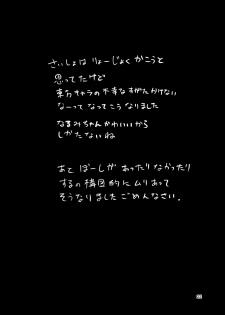 さいしょは りょーじょく かこうと
思ってたけど
東方キャラの不幸な すがた かけない
なーって なってこう なりました
なまみちゃん かわいいから
しかたないね
あと ぼーしが あったり なかったり
するの 構図的に ムリ あって
そうなりました ごめんなさい。